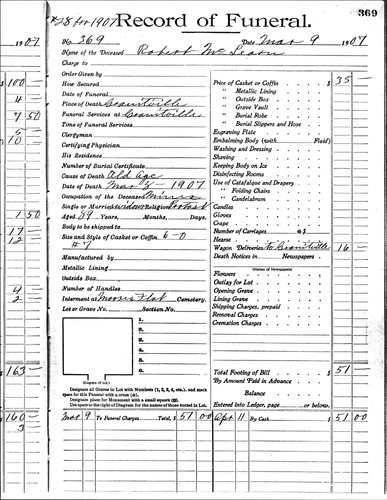 #28 for 1907
369
Record of Funeral.
1907
No. 369
Date Mar 9 1907
Name of the Deceased Robert
Charge to
Order Given by
How Secured
Date of Funeral
Place of Death
Funeral Services at
Time of Funeral Services
Clergyman
Certifying Physician
His Residence
Number of Burial Certificate
Cause of Death Old Age
Date of Death Mar 1907
Occupation of the Deceased Miner
Single or Married widower Religion Protest
Aged 89 Years, Months, Days.
Body to be shipped to
Size and Style of Casket or Coffin 6-0
#7
Manufactured by
Metallic Lining
Outside Box
Number of Handles
Interment at Moores Flat Cemetery.
Lot or Grave No. Section No.
1.
2.
3.
4.
5.
6.
(Diagram of Lot.)
Designate all Graves in Lot with Numbers (1, 2, 3, 4, etc.), and mark
space for this Funeral with a cross (x).
Designate place for Monument with a small square (□).
Use space to right of Diagram for the names of those buried in Lot.
Price of Casket or Coffin $ 35 —
" Metallic Lining
" Outside Box
" Grave Vault
" Burial Robe
" Burial Slippers and Hose
Engraving Plate
Embalming Body (with Fluid)
Washing and Dressing
Shaving
Keeping Body on Ice
Disinfecting Rooms
Use of Catafalque and Drapery
" Folding Chairs
" Candelabrum
Candles
Gloves
Crape
Number of Carriages @ $
Hearse
Wagon Deliveries to 16 —
Death Notices in Newspapers
(Names of Newspapers)
Flowers
Outlay for Lot
Opening Grave
Lining Grave
Shipping Charges, prepaid
Removal Charges
Cremation Charges
Total Footing of Bill $ 51
By Amount Paid in Advance
Balance
Entered into Ledger, page or below.
Mar 9 To Funeral Charges Total, $ 51 00 Apr 11 By Cash $ 51 00
100 —
4
7 50
5
10
1 50
17
12
4
2
163 —
160 —
3